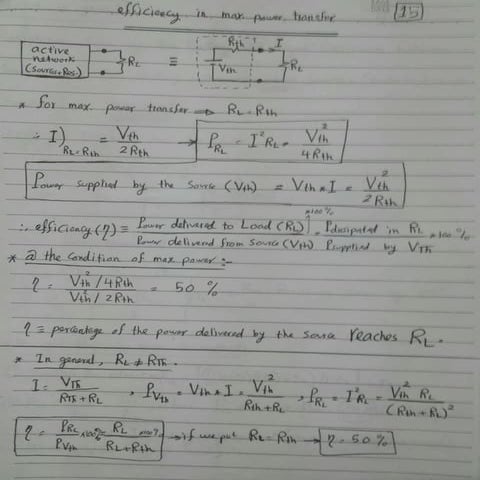 efficiency in max. power transfer
15
active network (Source+Res.)
RL
≡
Rth
I
Vth
RL
* for max. power transfer ⟹ RL = Rth
∴ I)RL=Rth = Vth / 2Rth → PRL = I²RL = Vth² / 4Rth
Power supplied by the source (Vth) = Vth * I = Vth² / 2Rth
∴ efficiency (η) ≡ Power delivered to Load (RL) / Power delivered from source (Vth) *100% = Pdissipated in RL / Psupplied by VTh *100%
* @ the condition of max. power :-
η = Vth²/4Rth / Vth²/2Rth = 50 %
η ≡ percentage of the power delivered by the source reaches RL.
* In general, RL ≠ RTh.
I = VTh / RTh + RL , PVTh = Vth * I = Vth² / Rth + RL , PRL = I²RL = Vth² RL / (Rth + RL)²
η = PRL / PVth *100% = RL / RL + Rth *100% → if we put RL = Rth → η = 50 %